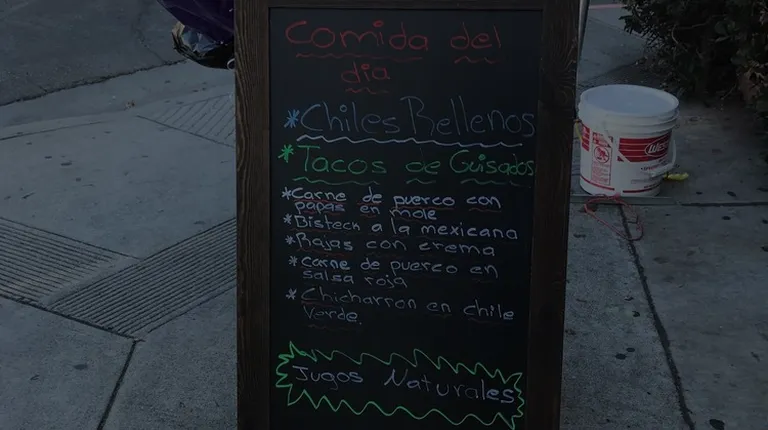 Comida del
dia
*Chiles Rellenos
*Tacos de Guisados
*Carne de puerco con
papas en mole
*Bisteck a la mexicana
*Rajas con crema
*Carne de puerco en
salsa roja
*Chicharron en chile
Verde.
Jugos Naturales